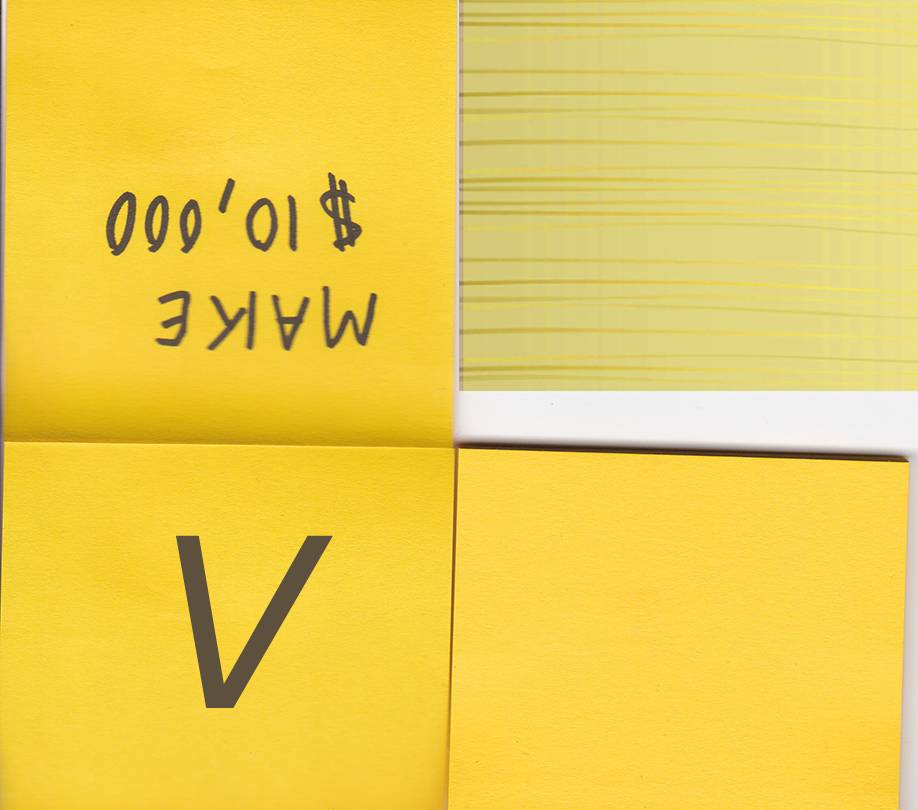 MAKE
$10,000
V